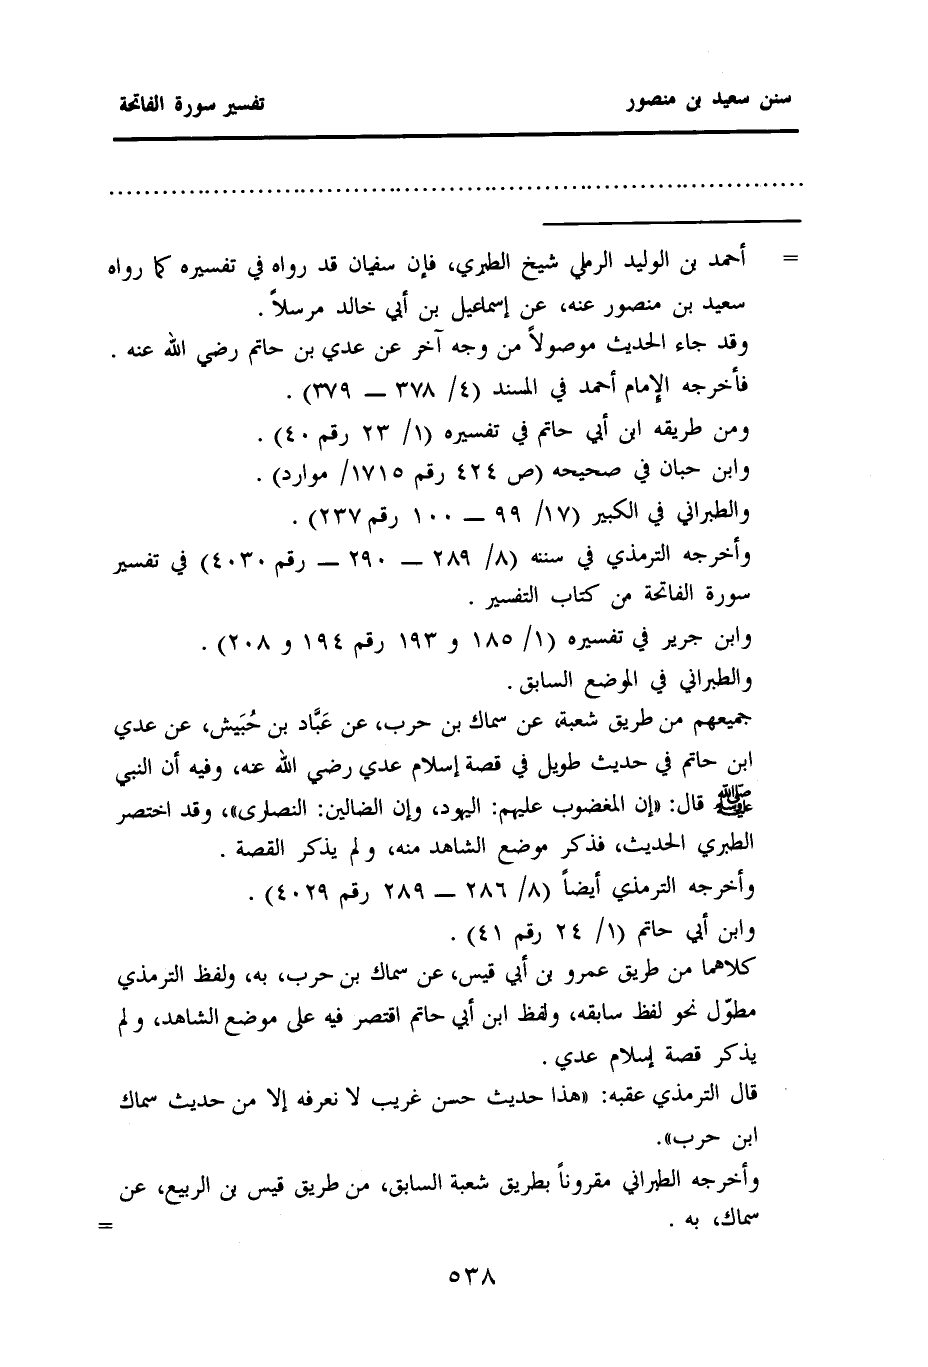 سنن سعيد بن منصور تفسير سورة الفاتحة
= أحمد بن الوليد الرملي شيخ الطبري، فإن سفيان قد رواه في تفسيره كما رواه
سعيد بن منصور عنه، عن إسماعيل بن أبي خالد مرسلاً .
وقد جاء الحديث موصولاً من وجه آخر عن عدي بن حاتم رضي الله عنه .
فأخرجه الإمام أحمد في المسند (٤/ ٣٧٨ ــ ٣٧٩) .
ومن طريقه ابن أبي حاتم في تفسيره (١/ ٢٣ رقم ٤٠) .
وابن حبان في صحيحه (ص ٤٢٤ رقم ١٧١٥/ موارد) .
والطبراني في الكبير (١٧/ ٩٩ ــ ١٠٠ رقم ٢٣٧) .
وأخرجه الترمذي في سننه (٨/ ٢٨٩ ــ ٢٩٠ ــ رقم ٤٠٣٠) في تفسير
سورة الفاتحة من كتاب التفسير .
وابن جرير في تفسيره (١/ ١٨٥ و ١٩٣ رقم ١٩٤ و ٢٠٨) .
والطبراني في الموضع السابق .
جميعهم من طريق شعبة، عن سماك بن حرب، عن عَبَّاد بن حُبَيش، عن عدي
ابن حاتم في حديث طويل في قصة إسلام عدي رضي الله عنه، وفيه أن النبي
ﷺ قال: «إن المغضوب عليهم: اليهود، وإن الضالين: النصارى»، وقد اختصر
الطبري الحديث، فذكر موضع الشاهد منه، ولم يذكر القصة .
وأخرجه الترمذي أيضاً (٨/ ٢٨٦ ــ ٢٨٩ رقم ٤٠٢٩) .
وابن أبي حاتم (١/ ٢٤ رقم ٤١) .
كلاهما من طريق عمرو بن أبي قيس، عن سماك بن حرب، به، ولفظ الترمذي
مطوّل نحو لفظ سابقه، ولفظ ابن أبي حاتم اقتصر فيه على موضع الشاهد، ولم
يذكر قصة إسلام عدي .
قال الترمذي عقبه: «هذا حديث حسن غريب لا نعرفه إلا من حديث سماك
ابن حرب».
وأخرجه الطبراني مقروناً بطريق شعبة السابق، من طريق قيس بن الربيع، عن
سماك، به . =
٥٣٨